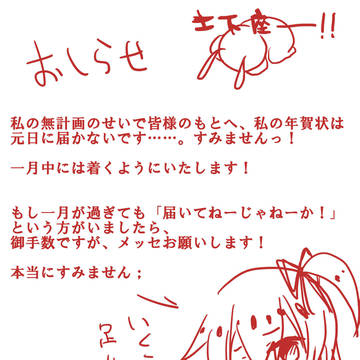 おしらせ
土下座ー!!
私の無計画のせいで皆様のもとへ、私の年賀状は
元日に届かないです……。すみませんっ！
一月中には着くようにいたします！
もし一月が過ぎても「届いてねーじゃねーか！」
という方がいましたら、
御手数ですが、メッセお願いします！
本当にすみません；